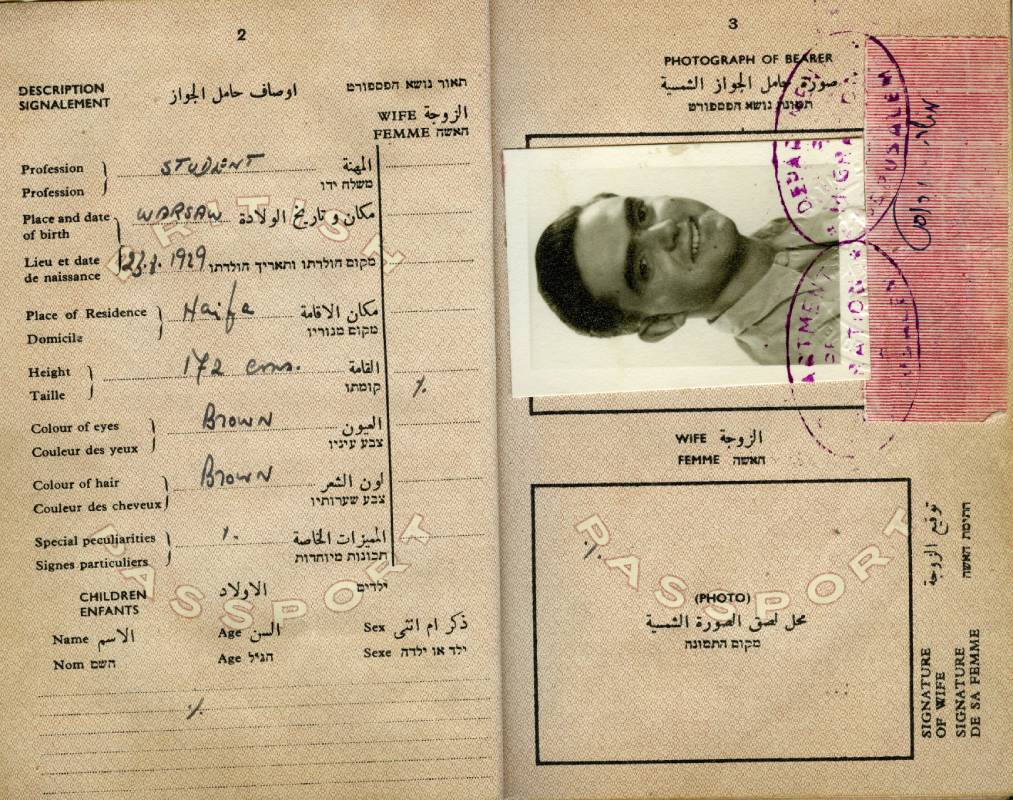 2
DESCRIPTION
SIGNALEMENT
اوصاف حامل الجواز
תאור נושא הפספורט
WIFE الزوجة
FEMME האשה
Profession STUDENT المهنة
Profession משלח ידו
Place and date of birth WARSAW مكان و تاريخ الولادة
Lieu et date de naissance 1929 מקום הולדתו ותאריך הולדתו
Place of Residence Haifa مكان الاقامة
Domicile מקום מגוריו
Height 172 cms. القامة
Taille קומתו
٪
Colour of eyes BROWN العيون
Couleur des yeux צבע עיניו
Colour of hair BROWN لون الشعر
Couleur des cheveux צבע שערותיו
Special peculiarities ٪ المميزات الخاصة
Signes particuliers תכונות מיוחדות
CHILDREN الاولاد ילדים
ENFANTS
Name الاسم Age السن Sex ذكر ام انثى
Nom השם Age הגיל Sexe ילד או ילדה
٪
BRITISH
PASSPORT
3
PHOTOGRAPH OF BEARER
صورة حامل الجواز الشمسية
תמונת נושא הפספורט
JERUSALEM
WIFE الزوجة
FEMME האשה
PASSPORT
٪
(PHOTO)
محل لصق الصورة الشمسية
מקום התמונה
توقيع الزوجة
חתימת האשה
SIGNATURE
OF WIFE
SIGNATURE
DE SA FEMME